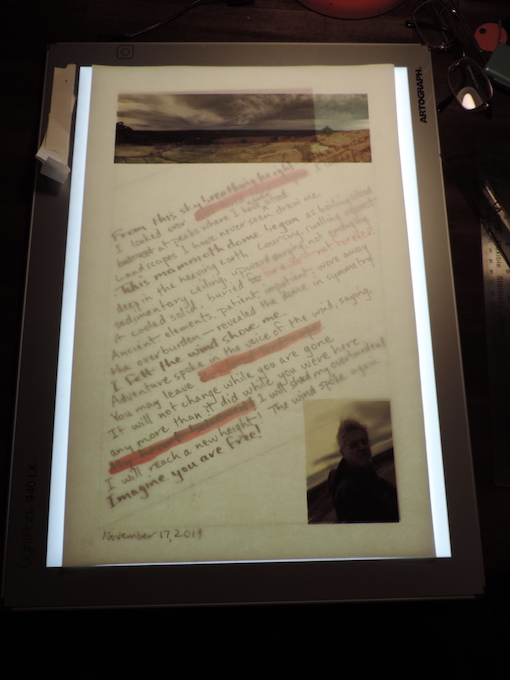 ARTOGRAPH.
From this skybreathing height
I looked over
at peaks where I had stood
Landscapes I have never seen draw me.
This mammoth dome began as boiling blood
deep in the heaving earth. Coursing, swelling against
sedimentary ceiling, upward surging not emerging
it cooled solid, buried not
Ancient elements, patient, impatient, wore away
the overburden—revealed the dome in symmetry
I felt the wind shove me.
Adventure spoke in the voice of the wind, saying,
You may leave.
It will not change while you are gone
any more than it did while you were here
I will shed my overburden!
I will reach a new height! The wind spoke again
Imagine you are free!
November 17, 2014
LightPad 940 LX